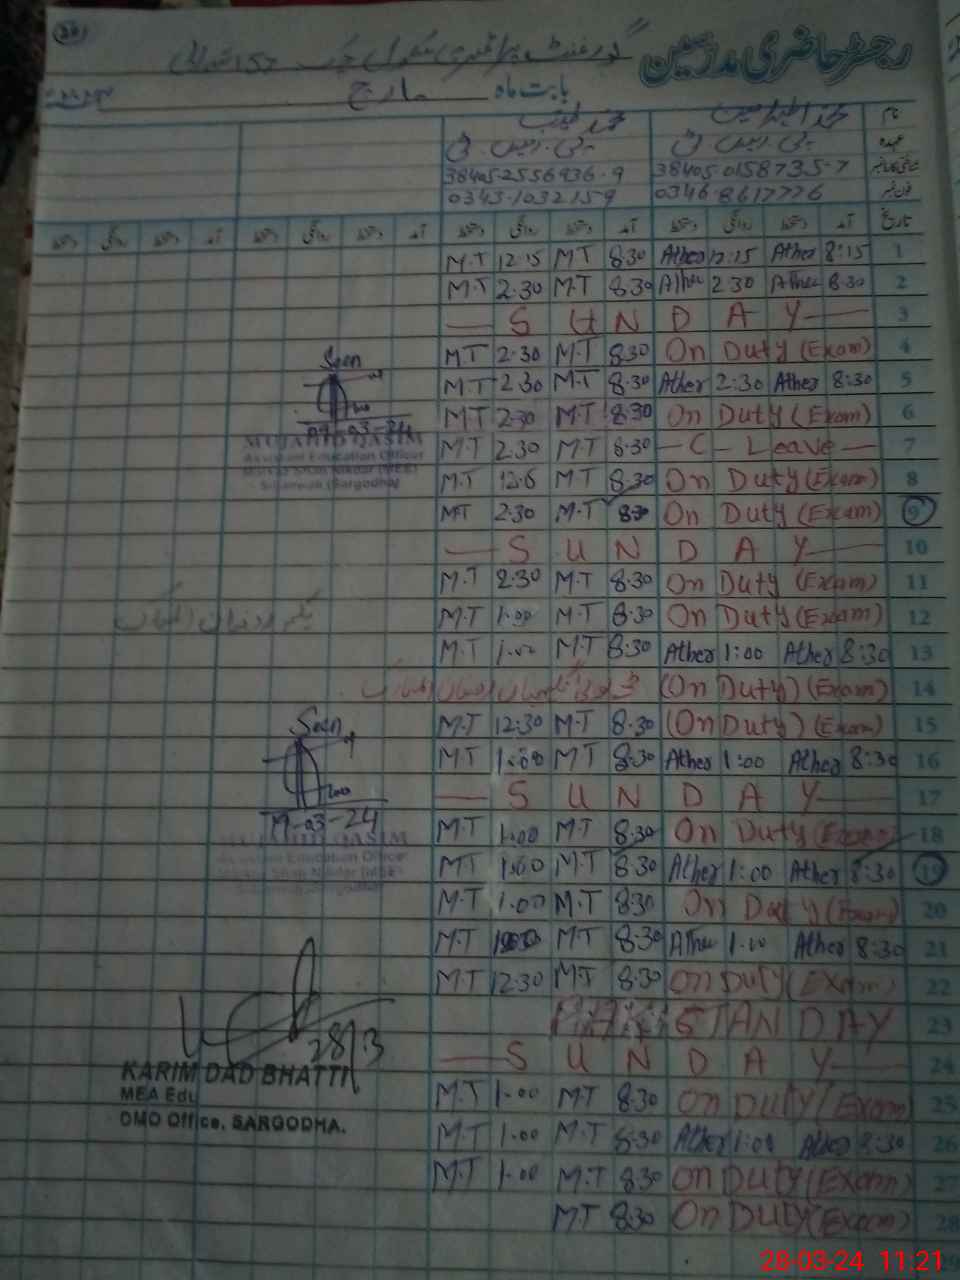 رجسٹر حاضری مدرسین
گورنمنٹ پرائمری سکول چک
بابت ماہ مارچ
نام
عہدہ
38405-2556936-9 38405-0158735-7
0343-1032159 0346 8617776
تاریخ آمد دستخط روانگی دستخط آمد دستخط روانگی دستخط آمد دستخط روانگی دستخط آمد دستخط روانگی دستخط
M.T 12.15 M.T 8.30 Ather 12:15 Ather 8:15 1
M.T 2.30 M.T 8.30 Ather 2 30 Ather 8.30 2
S U N D A Y 3
M.T 2.30 M.T 8.30 On Duty (Exam) 4
M.T 2.30 M.T 8.30 Ather 2:30 Ather 8:30 5
M.T 2.30 M.T 8.30 On Duty (Exam) 6
M.T 2.30 M.T 8.30 - C - Leave - 7
M.T M.T 8.30 On Duty (Exam) 8
M.T 2.30 M.T 8.30 On Duty (Exam) 9
S U N D A Y 10
M.T 2.30 M.T 8.30 On Duty (Exam) 11
M.T 1.00 M.T 8.30 On Duty (Exam) 12
M.T 1.00 M.T 8.30 Ather 1:00 Ather 8:30 13
(On Duty) (Exam) 14
M.T 12:30 M.T 8.30 (On Duty) (Exam) 15
M.T 1.00 M.T 8.30 Ather 1:00 Ather 8:30 16
S U N D A Y 17
M.T 1.00 M.T 8.30 On Duty (Exam) 18
M.T 1.00 M.T 8.30 Ather 1:00 Ather 8:30 19
M.T 1.00 M.T 8.30 On Duty (Exam) 20
M.T M.T 8.30 Ather 1.00 Ather 8:30 21
M.T 12:30 M.T 8.30 On Duty (Exam) 22
PAKISTAN DAY 23
S U N D A Y 24
M.T 1.00 M.T 8.30 On Duty (Exam) 25
M.T 1.00 M.T 8.30 Ather 1:00 Ather 8:30 26
M.T 1.00 M.T 8.30 On Duty (Exam) 27
M.T 8.30 On Duty (Exam) 28
Seen
09-03-24
MUJAHID QASIM
Assistant Education Officer
یکم رمضان المبارک
Seen
19-03-24
MUJAHID QASIM
Assistant Education Officer
28/3
KARIM DAD BHATTI
MEA Edu
DMO Office, SARGODHA.
28-03-24 11:21